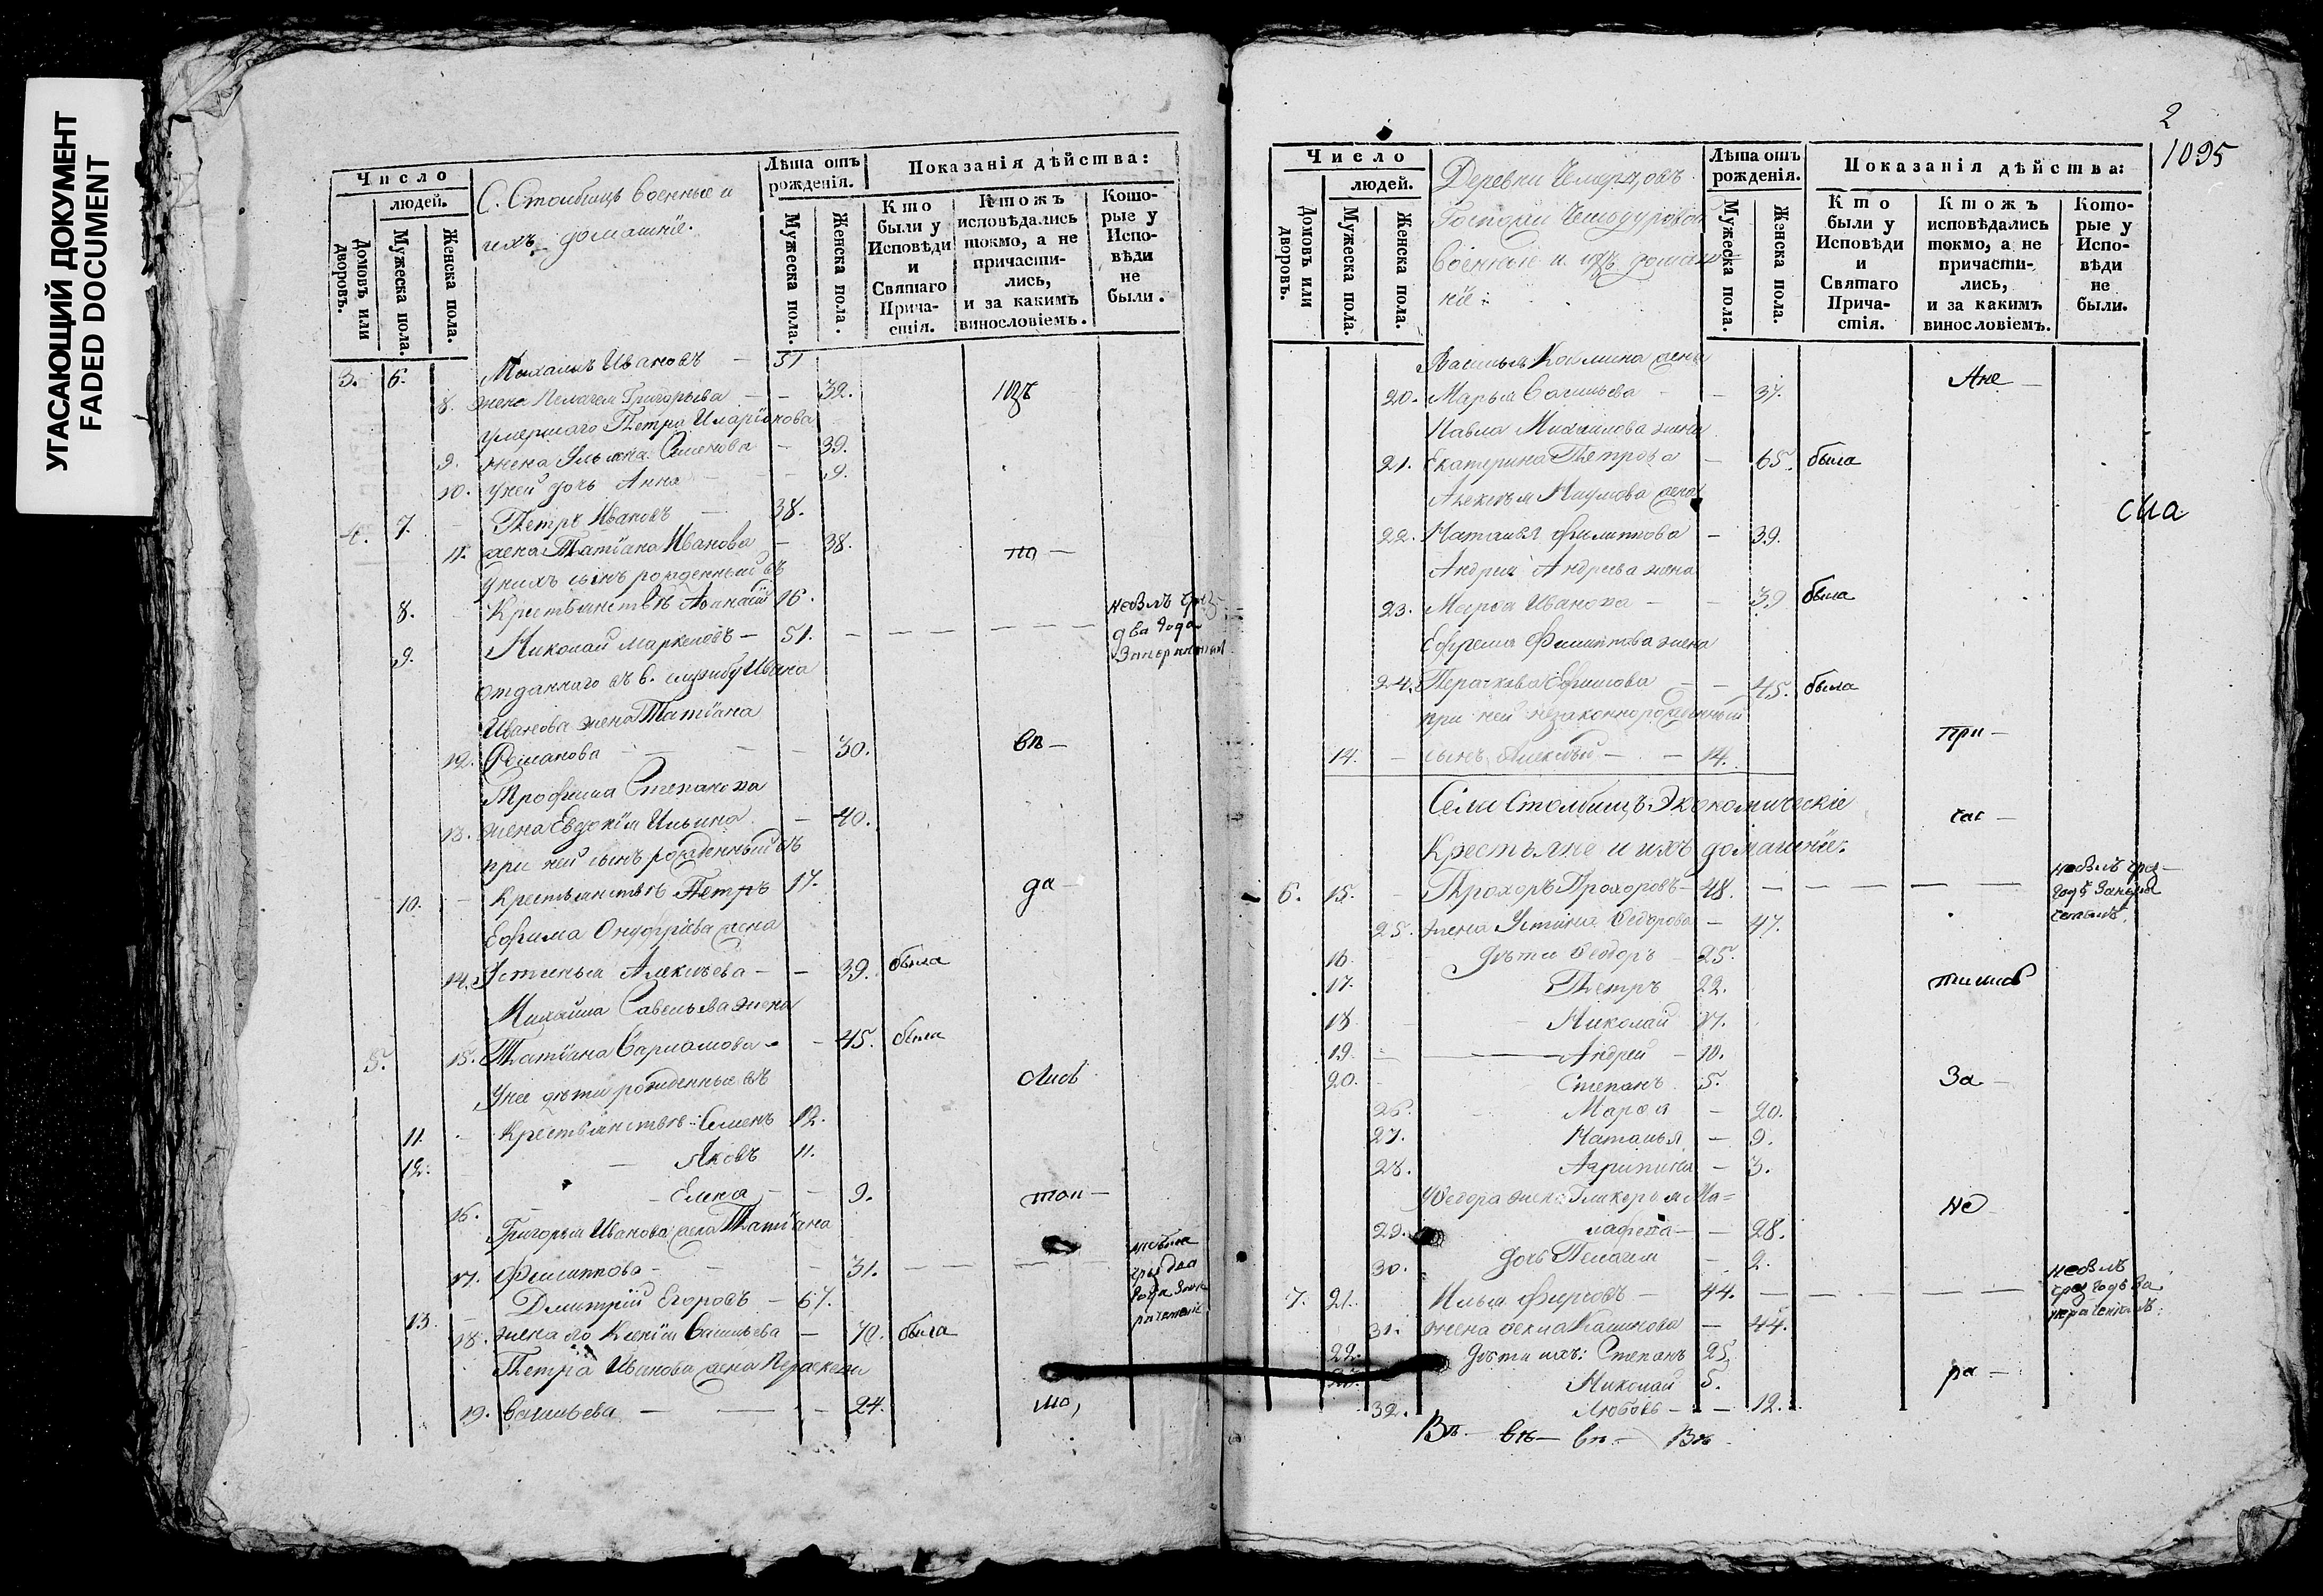 УГАСАЮЩИЙ ДОКУМЕНТ
FADED DOCUMENT
Число
людей.
Домовъ или дворовъ.
Мужеска пола.
Женска пола.
С. Столбищъ военные и
ихъ домашніе.
Лѣта отъ рожденія.
Мужеска пола.
Женска пола.
Показанія дѣйства:
Кто были у Исповѣди и Святаго Причастія.
Ктожъ исповѣдались токмо, а не причастились, и за какимъ винословіемъ.
Которые у Исповѣди не были.
3. 6. Михаилъ Ивановъ — 51
8. жена Пелагея Григорьева — 32.
умершаго Петра Иларіонова
9. жена Ульяна Семенова — 39.
10. у ней дочь Анна — 9.
4. 7. Петръ Ивановъ — 38.
11. жена Татіана Иванова — 38. по —
у нихъ сынъ рожденный въ
8. Крестьянствѣ Афанасій 16.
9. Николай Маркеловъ — 51. небылъ
два года
отданнаго въ в. службу Ивана
Иванова жена Татіана
12. Романова — 30. вѣ —
Трофима Степанова
13. жена Евдокія Ильина — 40.
при ней сынъ рожденный въ
10. Крестьянствѣ Петръ 17. да —
Ефима Онуфріева жена
14. Устинья Алексѣева — 39. была
Михаила Савельева жена
5. 15. Татіана Варламова — 45. была
У нее дѣти рожденные въ
11. Крестьянствѣ: Семенъ 12.
12. Яковъ 11.
16. Елена — 9.
Григорья Иванова жена Татіана
17. Филиппова — 31. небыла
13. Дмитрій Егоровъ — 67.
18. жена его Ксенія Васильева — 70. была
Петра Иванова жена Параскева
19. Васильева — 24. мо,
2
1095
Число
людей.
Домовъ или дворовъ.
Мужеска пола.
Женска пола.
Деревни
Госпожи
военные и ихъ домаш=
ніе:
Лѣта отъ рожденія.
Мужеска пола.
Женска пола.
Показанія дѣйства:
Кто были у Исповѣди и Святаго Причастія.
Ктожъ исповѣдались токмо, а не причастились, и за какимъ винословіемъ.
Которые у Исповѣди не были.
Василья жена
20. Марья Васильева — 37.
Павла Михаилова жена
21. Екатерина Петрова — 65. была
Алексѣя Наумова жена
22. Наталья Филиппова — 39.
Андрея Андреева жена
23. Марѳа Иванова — 39 была
Ефрема Филиппова жена
24. Параскева Ефимова — 45. была
при ней незаконнорожденный
14. сынъ Алексѣй — 14. при —
Села Столбищъ Экономическіе
Крестьяне и ихъ домашніе:
6. 15. Прохоръ Прохоровъ — 48. небылъ
25. жена Устинья Ѳедорова — 47.
16. Дѣти Ѳедоръ — 25.
17. Петръ 22.
18 Николай 17.
19. Андрей — 10.
20. Степанъ 5. За —
26. Марѳа — 20.
27. Наталья — 9.
28. Агрипина — 3.
Ѳедора жена Гликерья Ма=
29. лафеева — 28. не
30. дочь Пелагея — 2.
7. 21. Илья Фирсовъ — 44. небылъ
31. жена Ѳекла — 44.
22. Дѣти ихъ: Степанъ 25.
Николай 5. ра —
32. Любовь — 12.
Вѣ — вѣ — вѣ — Вѣ